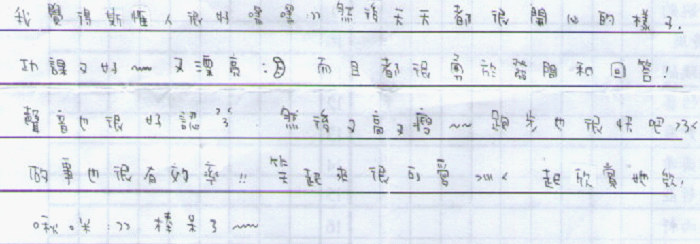 我覺得斯惟人很好嘿嘿>> 然後天天都很開心的樣子.
功課又好~~ 又漂亮:D 而且都很勇於發問和回答!
聲音也很好認>"<. 然後又高又瘦~~ 跑步也很快吧>"<
的事也很有效率!! 笑起來很可愛>///< 超欣賞她欸!
啾。咪:>> 棒呆了~~